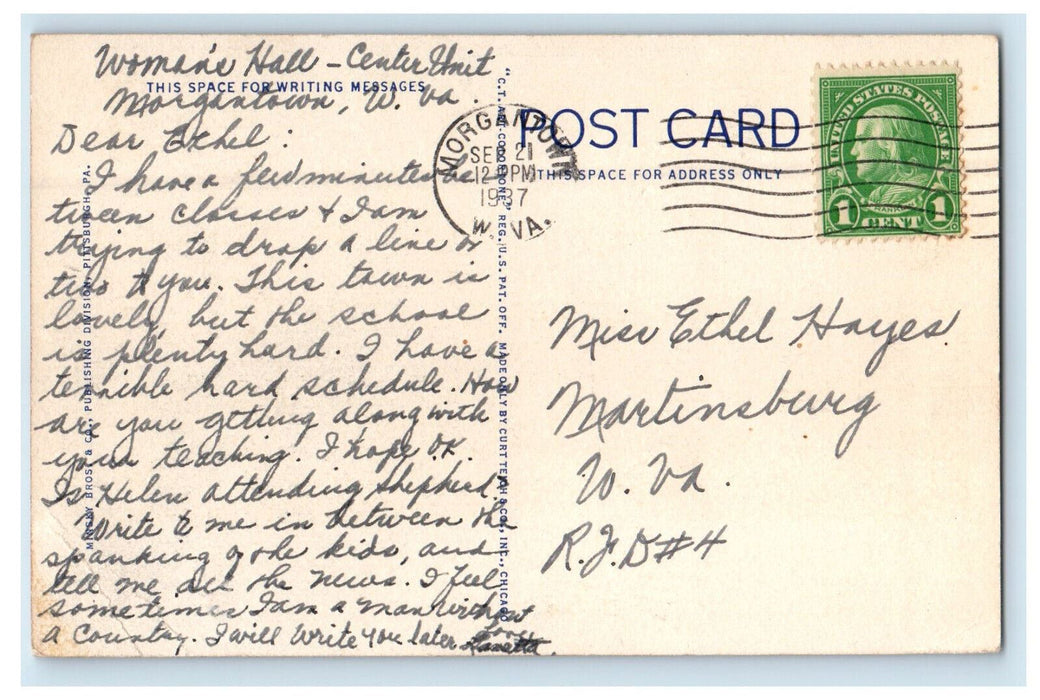 Woman's Hall - Center Unit
THIS SPACE FOR WRITING MESSAGES
Morgantown, W. Va.
Dear Ethel:
I have a few minutes be
tween classes & I am
trying to drop a line or
two to you. This town is
lovely, but the school
is plenty hard. I have a
terrible hard schedule. How
are you getting along with
your teaching. I hope O.K.
Is Helen attending Shepherd.
Write to me in between the
spanking of the kids, and
tell me all the news. I feel
sometimes I am a man without
a Country. I will write you later
Love
MINSKY BROS. & CO., PUBLISHING DIVISION, PITTSBURGH, PA.
"C.T. ART-COLORTONE" REG. U.S. PAT. OFF. MADE ONLY BY CURT TEICH & CO., INC., CHICAGO
POST CARD
THIS SPACE FOR ADDRESS ONLY
MORGANTOWN
SEP 21
PM
1937
W. VA.
UNITED STATES POSTAGE
FRANKLIN
1 CENT 1
Miss Ethel Hayes
Martinsburg
W. Va.
R.F.D #4